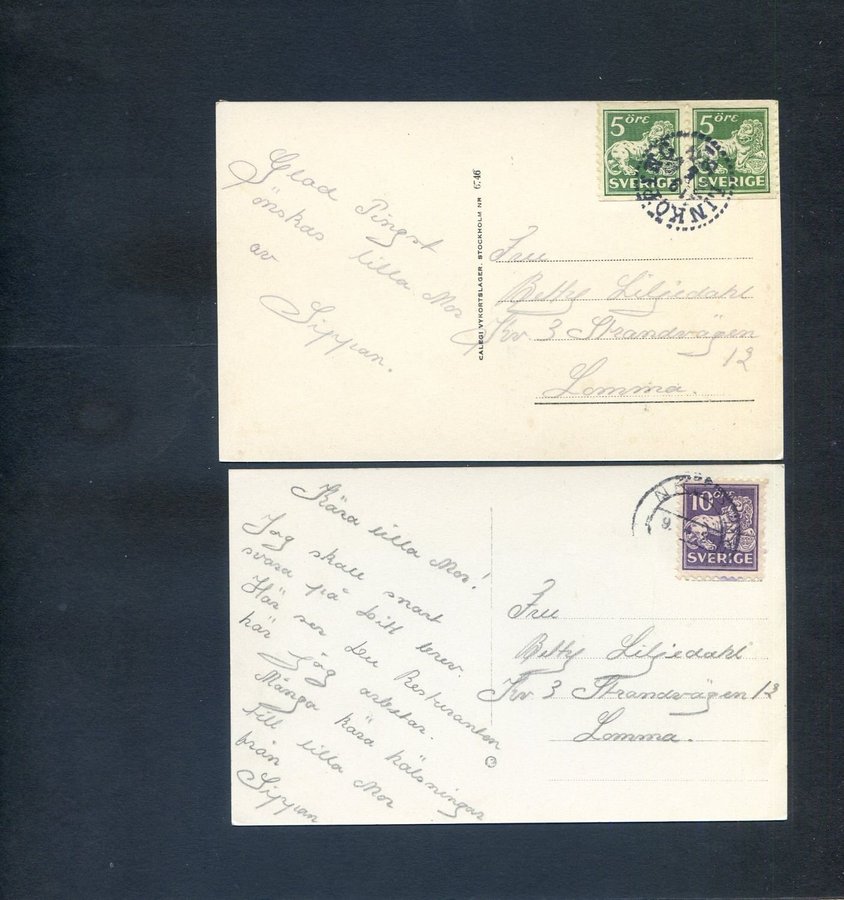 Glad Pingst
önskas lilla Mor
av
Sippan.
CALEGI VYKORTSLAGER, STOCKHOLM NR 6746
5 ÖRE
SVERIGE
5 ÖRE
SVERIGE
Fru
Betty Liljedahl
Kv. 3 Strandvägen
12
Lomma.
Kära lilla Mor!
Jag skall snart
svara på Ditt brev.
Här ser du Resturanten
här jag arbetar.
Många kära hälsningar
till lilla Mor
från
Sippan
10 ÖRE
SVERIGE
Fru
Betty Liljedahl
Kv. 3 Strandvägen 12
Lomma.